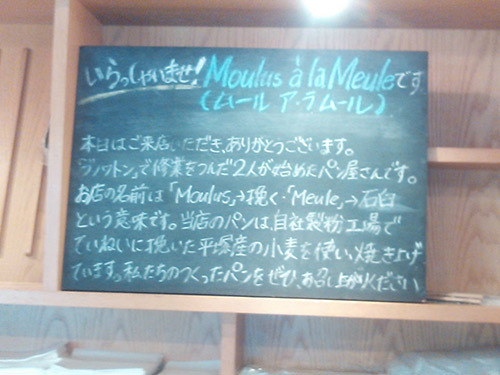 いらっしゃいませ! Moulus à la Meuleです
(ムール ア・ラ ムール)
本日はご来店いただき、ありがとうございます。
「ノットン」で修業をつんだ2人が始めたパン屋さんです。
お店の名前は「Moulus」→挽く・「Meule」→石臼
という意味です。当店のパンは、自社製粉工場で
ていねいに挽いた平塚産の小麦を使い、焼き上げ
ています。私たちのつくったパンをぜひ、お召し上がりください